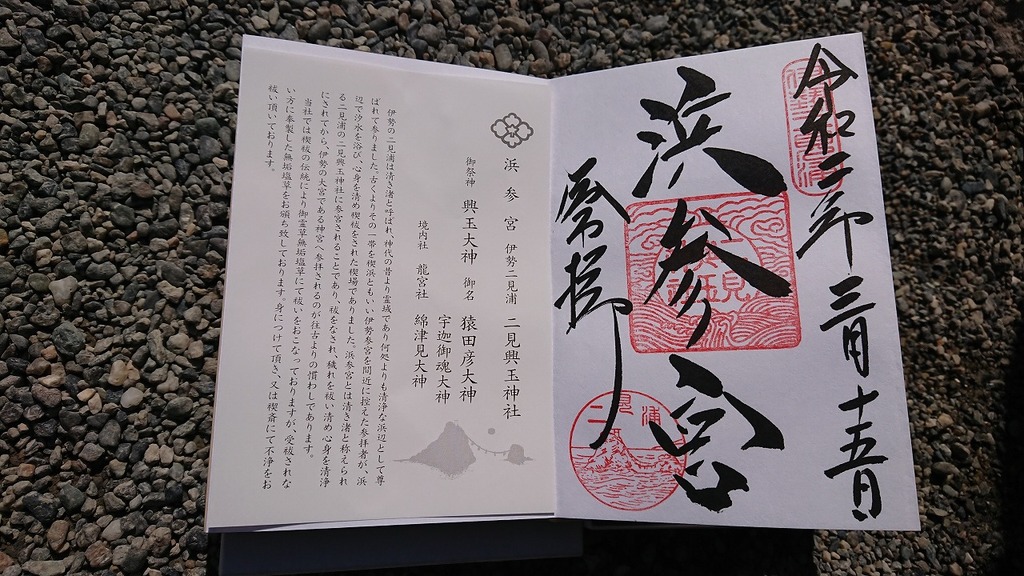 令和二年三月十五日
浜参宮
二見浦
浜参宮 伊勢二見浦 二見興玉神社
御祭神 興玉大神 御名 猿田彦大神
宇迦御魂大神
境内社 龍宮社 綿津見大神
伊勢の二見浦は清き渚と呼ばれ、神代の昔より霊域であり何処よりも清浄な浜辺として尊
ばれて参りました。古くよりその一帯を禊浜ともいい伊勢参宮を間近に控えた参拝者が、浜
辺で汐水を浴び、心身を清め禊祓をされた禊場でありました。浜参宮とは清き渚と称えられ
る二見浦の二見興玉神社に参宮されることであり、祓をなされ、穢れを祓い清め心身を清浄
にされてから、伊勢の大宮である神宮へ参拝されるのが往古よりの慣わしであります。
当社では禊祓の伝統により御霊草無垢塩草にて祓いをおこなっておりますが、受祓されな
い方に奉製した無垢塩草をお頒ち致しております。身につけて頂き、又は禊斎にて不浄をお
祓い頂いております。